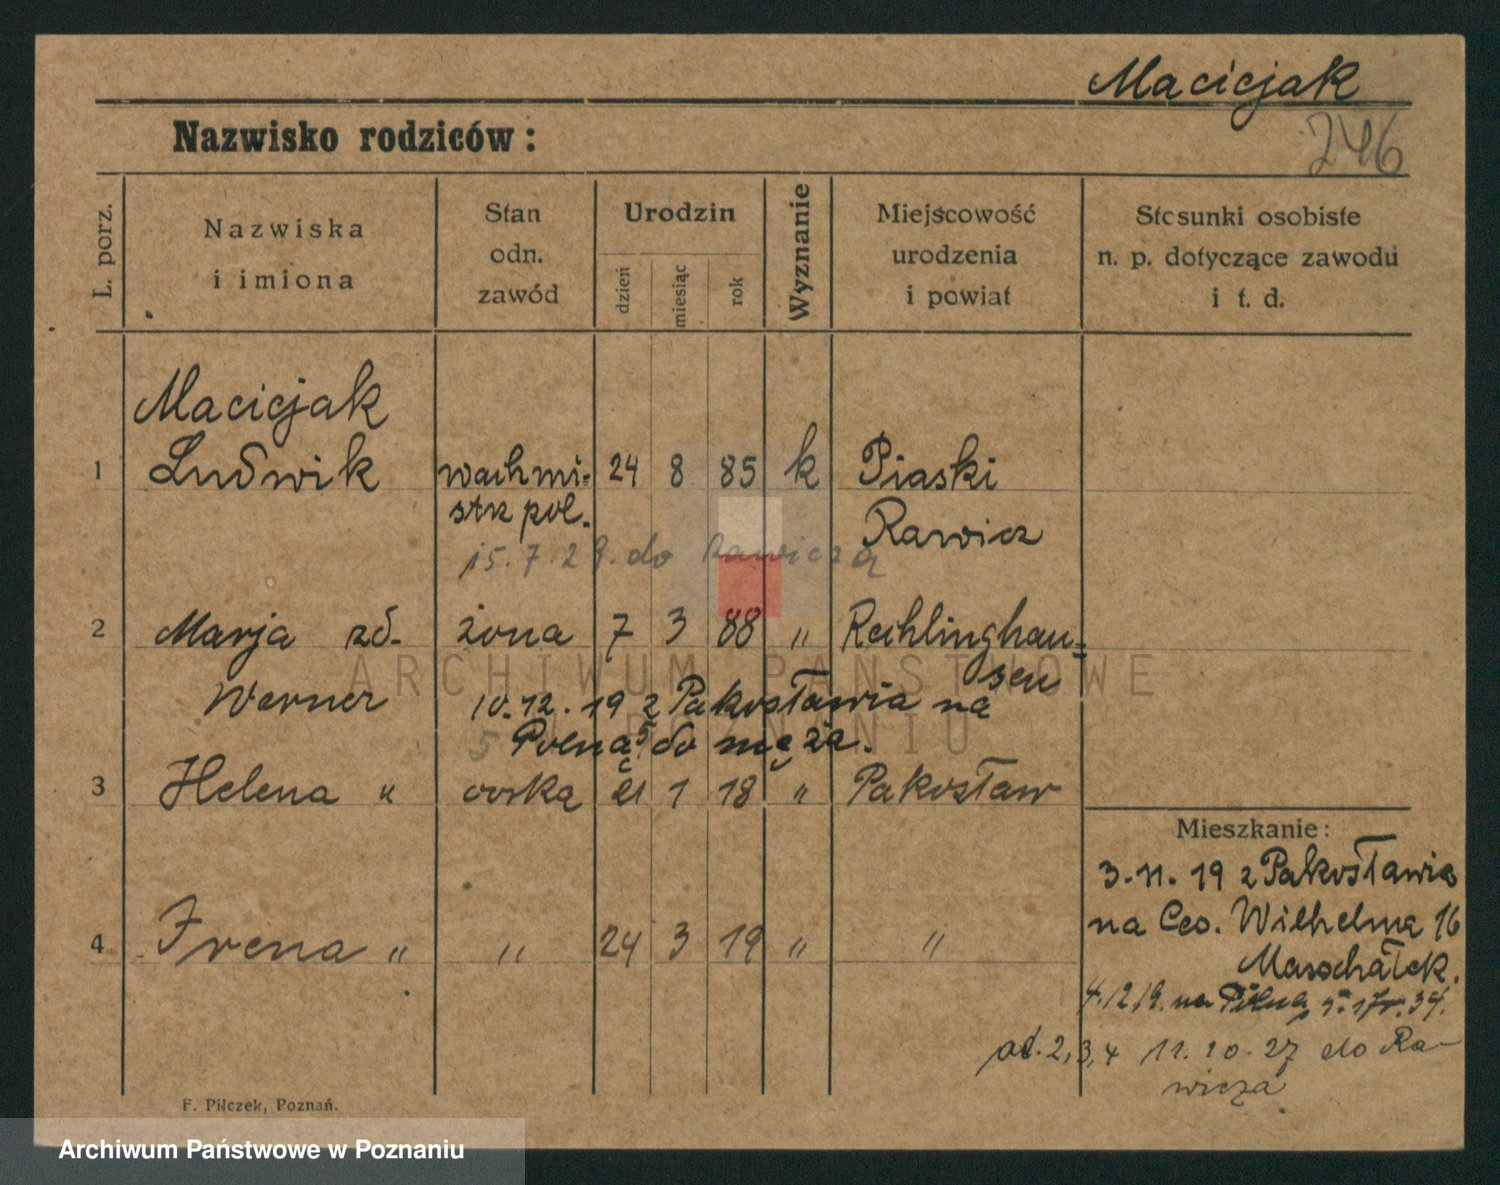 Maciejak
246
Nazwisko rodziców:
L. porz.
Nazwiska
i imiona
Stan
odn.
zawód
Urodzin
dzień
miesiąc
rok
Wyznanie
Miejscowość
urodzenia
i powiat
Stosunki osobiste
n. p. dotyczące zawodu
i t. d.
Maciejak
1 Ludwik wachmi- 24 8 85 k Piaski
strz pol. Rawicz
15.7.29. do Rawicza
2 Marja zd- żona 7 3 88 " Rechlinghau-
sen
Werner 10.12.19 z Pakosławia na
Polną 5 do męża.
3 Helena " córka 21 1 18 " Pakosław
Mieszkanie:
3.11.19 z Pakosławia
na Ces. Wilhelma 16
4 Irena " " 24 3 19 " "
Marschałek.
4.12.19. na Polną 5
ad. 2,3,4 11.10.27 do Ra-
wicza
F. Pilczek, Poznań.
ARCHIWUM PAŃSTWOWE
W POZNANIU
Archiwum Państwowe w Poznaniu